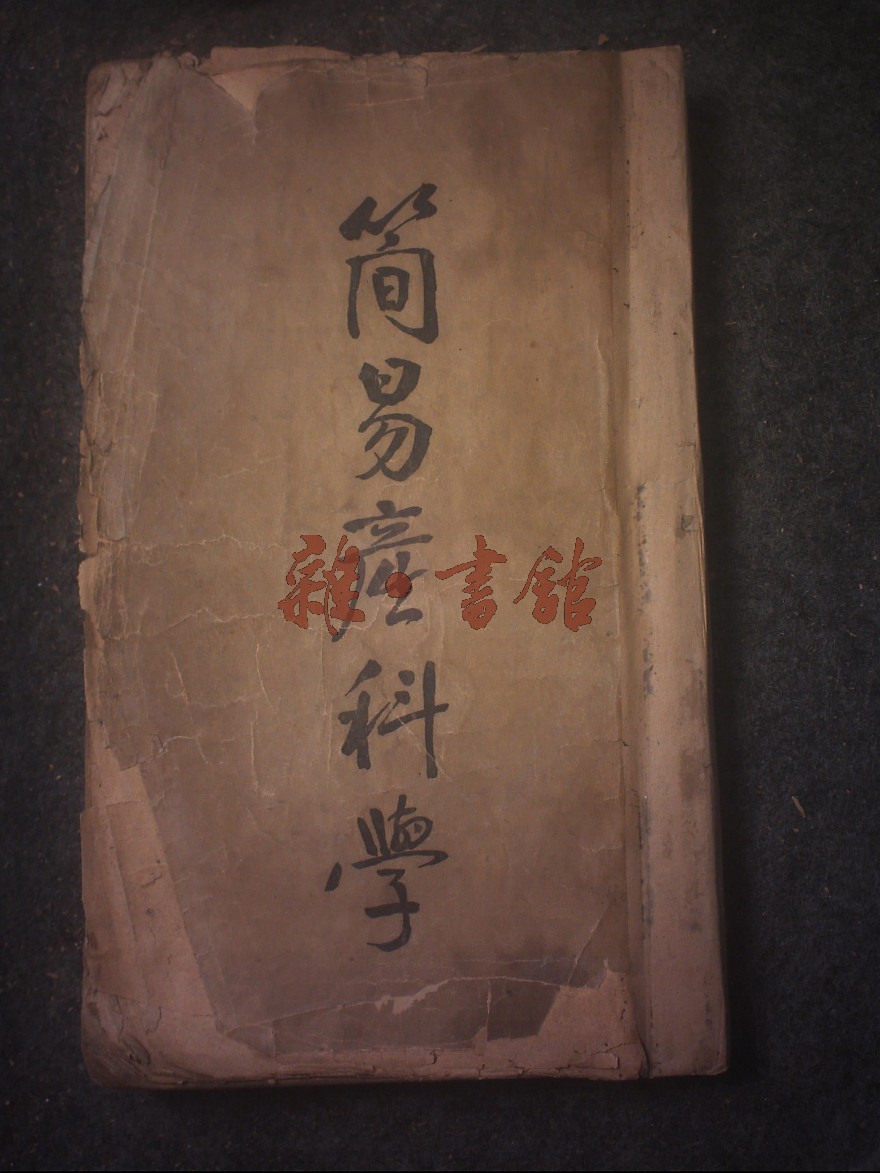 簡易産科學
雜·書館